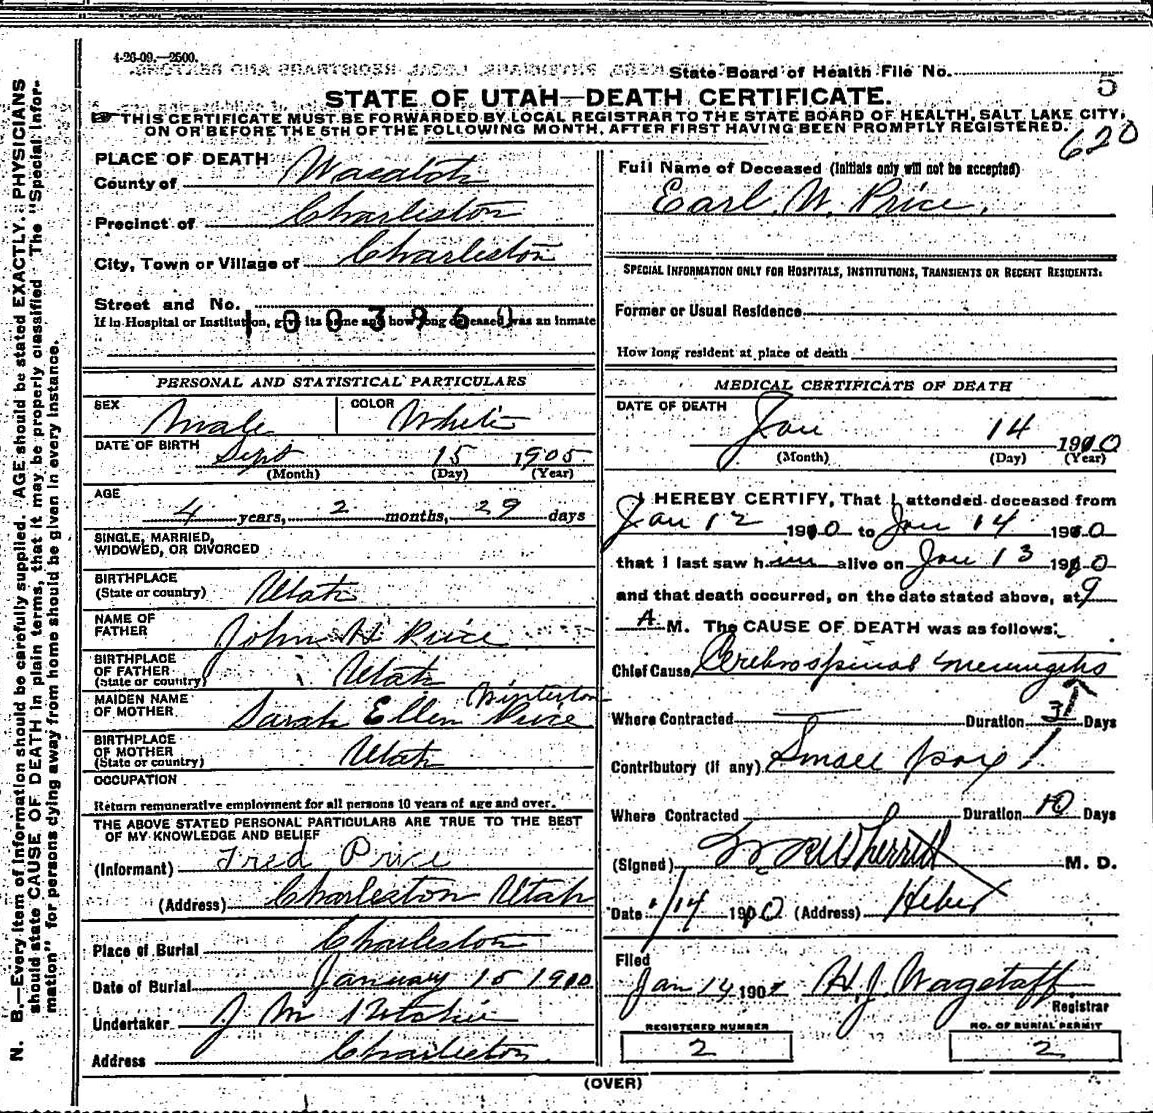 4-26-09.—2500.
State Board of Health File No. 5
STATE OF UTAH—DEATH CERTIFICATE.
THIS CERTIFICATE MUST BE FORWARDED BY LOCAL REGISTRAR TO THE STATE BOARD OF HEALTH, SALT LAKE CITY,
ON OR BEFORE THE 5TH OF THE FOLLOWING MONTH, AFTER FIRST HAVING BEEN PROMPTLY REGISTERED.
620
N. B.—Every item of information should be carefully supplied. AGE should be stated EXACTLY. PHYSICIANS
should state CAUSE OF DEATH in plain terms, that it may be properly classified. The "Special Infor-
mation" for persons dying away from home should be given in every instance.
PLACE OF DEATH
County of Wasatch
Precinct of Charleston
City, Town or Village of Charleston
Street and No.
If in Hospital or Institution, give its name and how long deceased was an inmate
1003960
PERSONAL AND STATISTICAL PARTICULARS
SEX Male COLOR White
DATE OF BIRTH Sept 15 1905
(Month) (Day) (Year)
AGE
4 years, 2 months, 29 days
SINGLE, MARRIED,
WIDOWED, OR DIVORCED
BIRTHPLACE
(State or country) Utah
NAME OF
FATHER John H Price
BIRTHPLACE
OF FATHER
(State or country) Utah
MAIDEN NAME
OF MOTHER Sarah Ellen Price Winterton
BIRTHPLACE
OF MOTHER
(State or country) Utah
OCCUPATION
Return remunerative employment for all persons 10 years of age and over.
THE ABOVE STATED PERSONAL PARTICULARS ARE TRUE TO THE BEST
OF MY KNOWLEDGE AND BELIEF
(Informant) Fred Price
(Address) Charleston Utah
Place of Burial Charleston
Date of Burial January 15 1910
Undertaker J M Ritchie
Address Charleston
Full Name of Deceased (Initials only will not be accepted)
Earl W. Price.
SPECIAL INFORMATION ONLY FOR HOSPITALS, INSTITUTIONS, TRANSIENTS OR RECENT RESIDENTS.
Former or Usual Residence
How long resident at place of death
MEDICAL CERTIFICATE OF DEATH
DATE OF DEATH
Jan 14 1910
(Month) (Day) (Year)
I HEREBY CERTIFY, That I attended deceased from
Jan 12 1910 to Jan 14 1910
that I last saw him alive on Jan 13 1910
and that death occurred, on the date stated above, at 9
A. M. The CAUSE OF DEATH was as follows:
Chief Cause Cerebrospinal meningitis
Where Contracted Duration 3 Days
Contributory (if any) Small pox
Where Contracted Duration 10 Days
(Signed) Wherritt M. D.
Date 1/14 1910 (Address) Heber
Filed
Jan 14 190 H. J. Wagstaff
Registrar
REGISTERED NUMBER
2
NO. OF BURIAL PERMIT
2
(OVER)